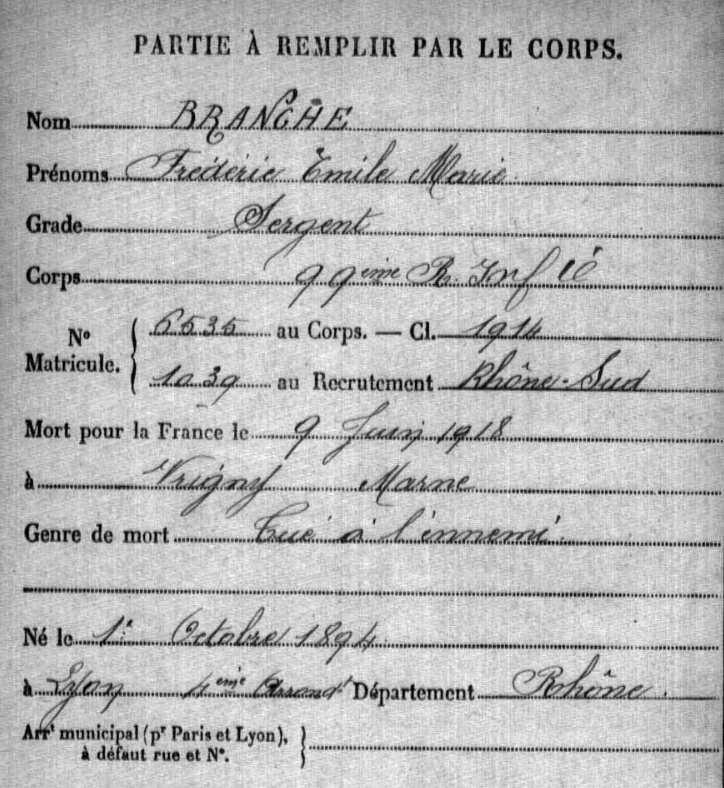 PARTIE À REMPLIR PAR LE CORPS.
Nom BRANCHE
Prénoms Frédéric Emile Marie
Grade Sergent
Corps 99ème R. Inf ie
No Matricule. { 6535 au Corps. — Cl. 1914
1039 au Recrutement Rhône-Sud
Mort pour la France le 9 Juin 1918
à Vrigny Marne
Genre de mort Tué à l'ennemi.
Né le 1er Octobre 1894
à Lyon 4ème Arrondt Département Rhône.
Arrt municipal (pr Paris et Lyon),
à défaut rue et No. }